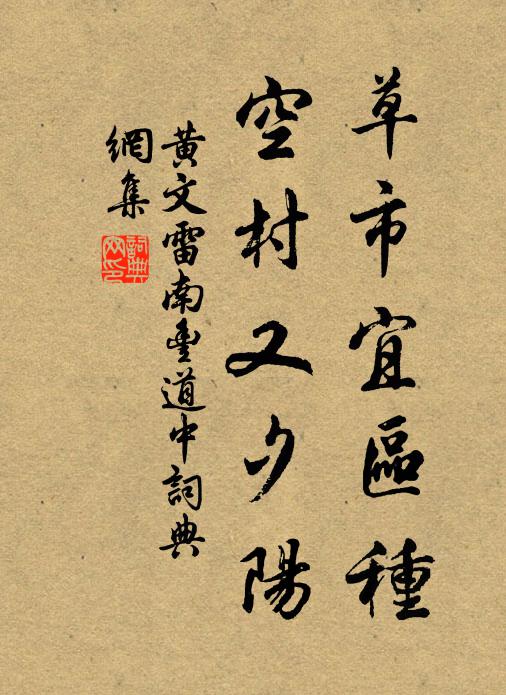 草市宜區種
空村又夕陽
黄文雷南豐道中詞典
網集
詞典網印